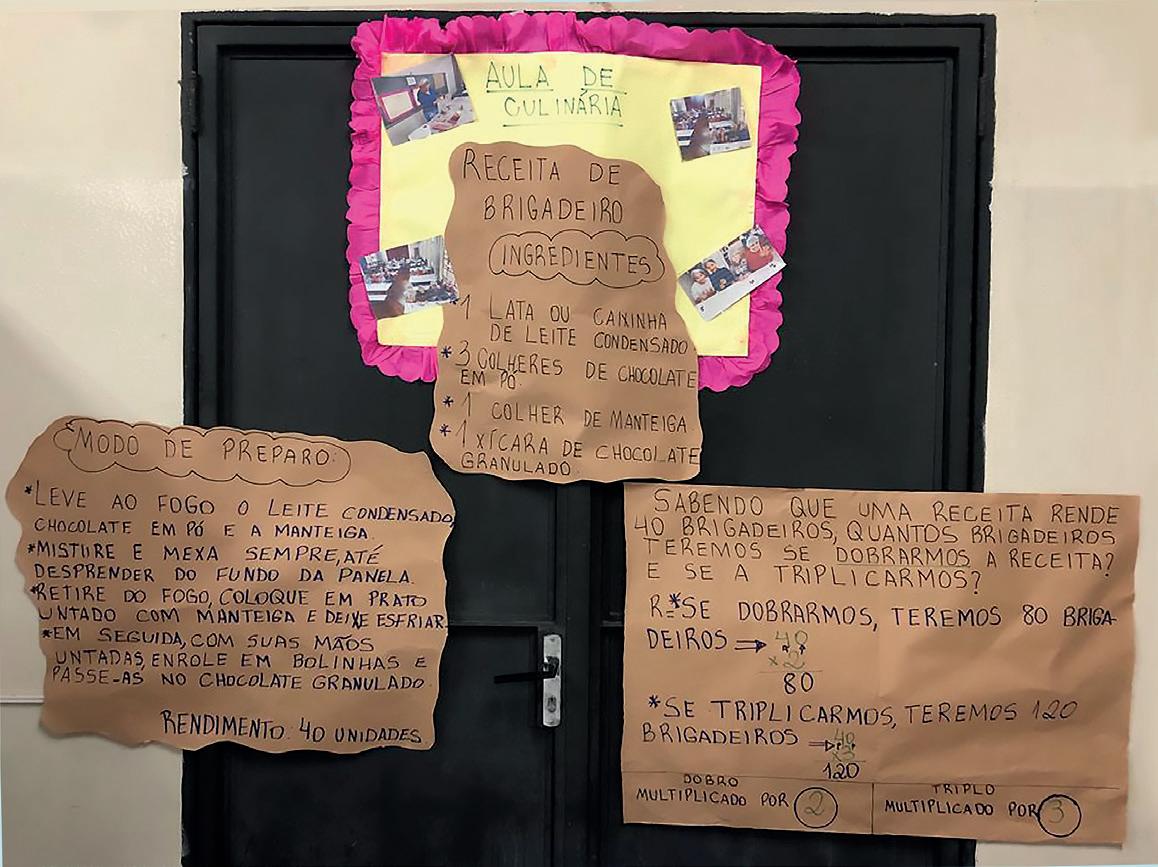 AULA DE
CULINÁRIA
RECEITA DE
BRIGADEIRO
INGREDIENTES
*1 LATA OU CAIXINHA
DE LEITE CONDENSADO
*3 COLHERES DE CHOCOLATE
EM PÓ.
*1 COLHER DE MANTEIGA
*1 XÍCARA DE CHOCOLATE
GRANULADO.
MODO DE PREPARO:
*LEVE AO FOGO O LEITE CONDENSADO,
CHOCOLATE EM PÓ E A MANTEIGA.
*MISTURE E MEXA SEMPRE, ATÉ
DESPRENDER DO FUNDO DA PANELA.
*RETIRE DO FOGO, COLOQUE EM PRATO
UNTADO COM MANTEIGA E DEIXE ESFRIAR.
*EM SEGUIDA, COM SUAS MÃOS
UNTADAS, ENROLE EM BOLINHAS E
PASSE-AS NO CHOCOLATE GRANULADO.
RENDIMENTO: 40 UNIDADES
SABENDO QUE UMA RECEITA RENDE
40 BRIGADEIROS, QUANTOS BRIGADEIROS
TEREMOS SE DOBRARMOS A RECEITA?
E SE A TRIPLICARMOS?
R-*SE DOBRARMOS, TEREMOS 80 BRIGA-
DEIROS ⇒ 40
x2
80
*SE TRIPLICARMOS, TEREMOS 120
BRIGADEIROS ⇒ 40
x3
120
DOBRO
MULTIPLICADO POR 2
TRIPLO
MULTIPLICADO POR 3